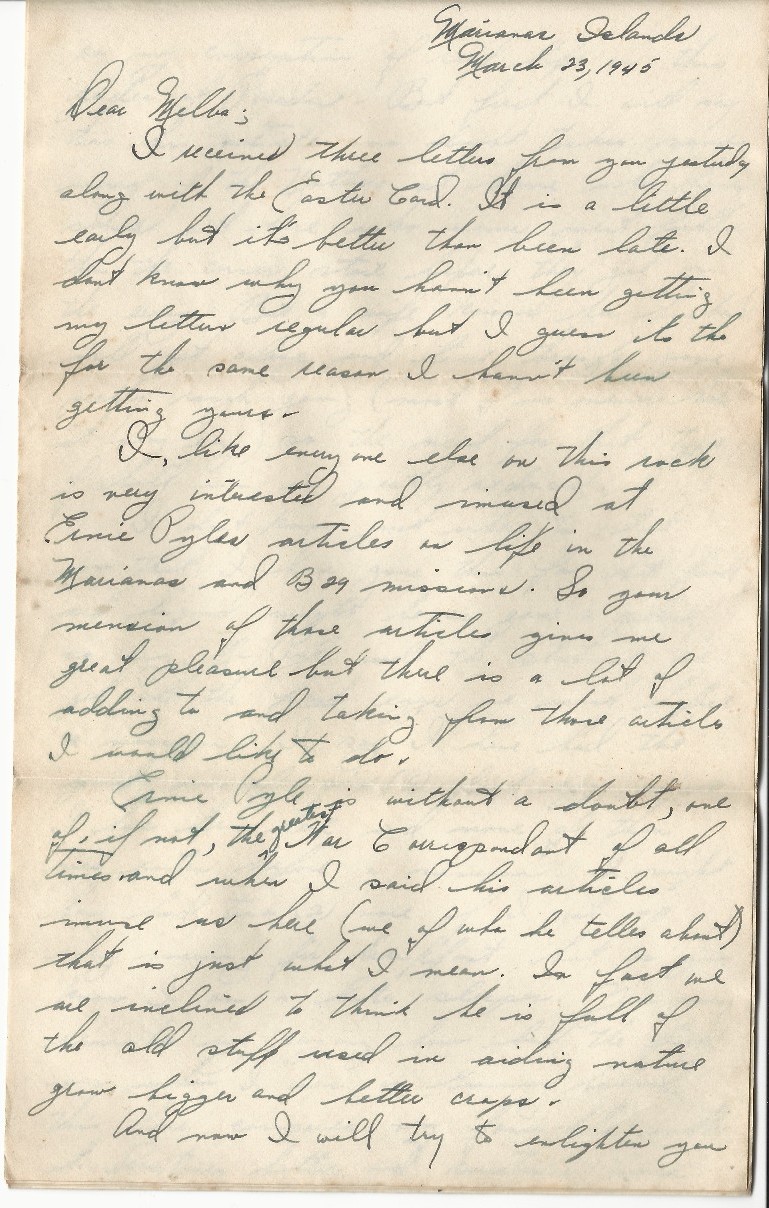 Marianas Islands
March 23, 1945
Dear Melba;
I received three letters from you yesterday
along with the Easter Card. It is a little
early but it's better than been late. I
don't know why you havn't been getting
my letters regular but I guess its the
for the same reason I havn't been
getting yours.
I, like every one else on this rock
is very interested and imused at
Ernie Pyles articles on life in the
Marianas and B 29 missions. So your
mension of those articles gives me
great pleasure but there is a lot of
adding to and taking from those articles
I would like to do.
Ernie Pyle is without a doubt, one
of, if not, the greatest War Correspondant of all
times and when I said his articles
imuse us here (we of who he telles about)
that is just what I mean. In fact we
are inclined to think he is full of
the old stuff used in aiding nature
grow bigger and better crops.
And now I will try to enlighten you